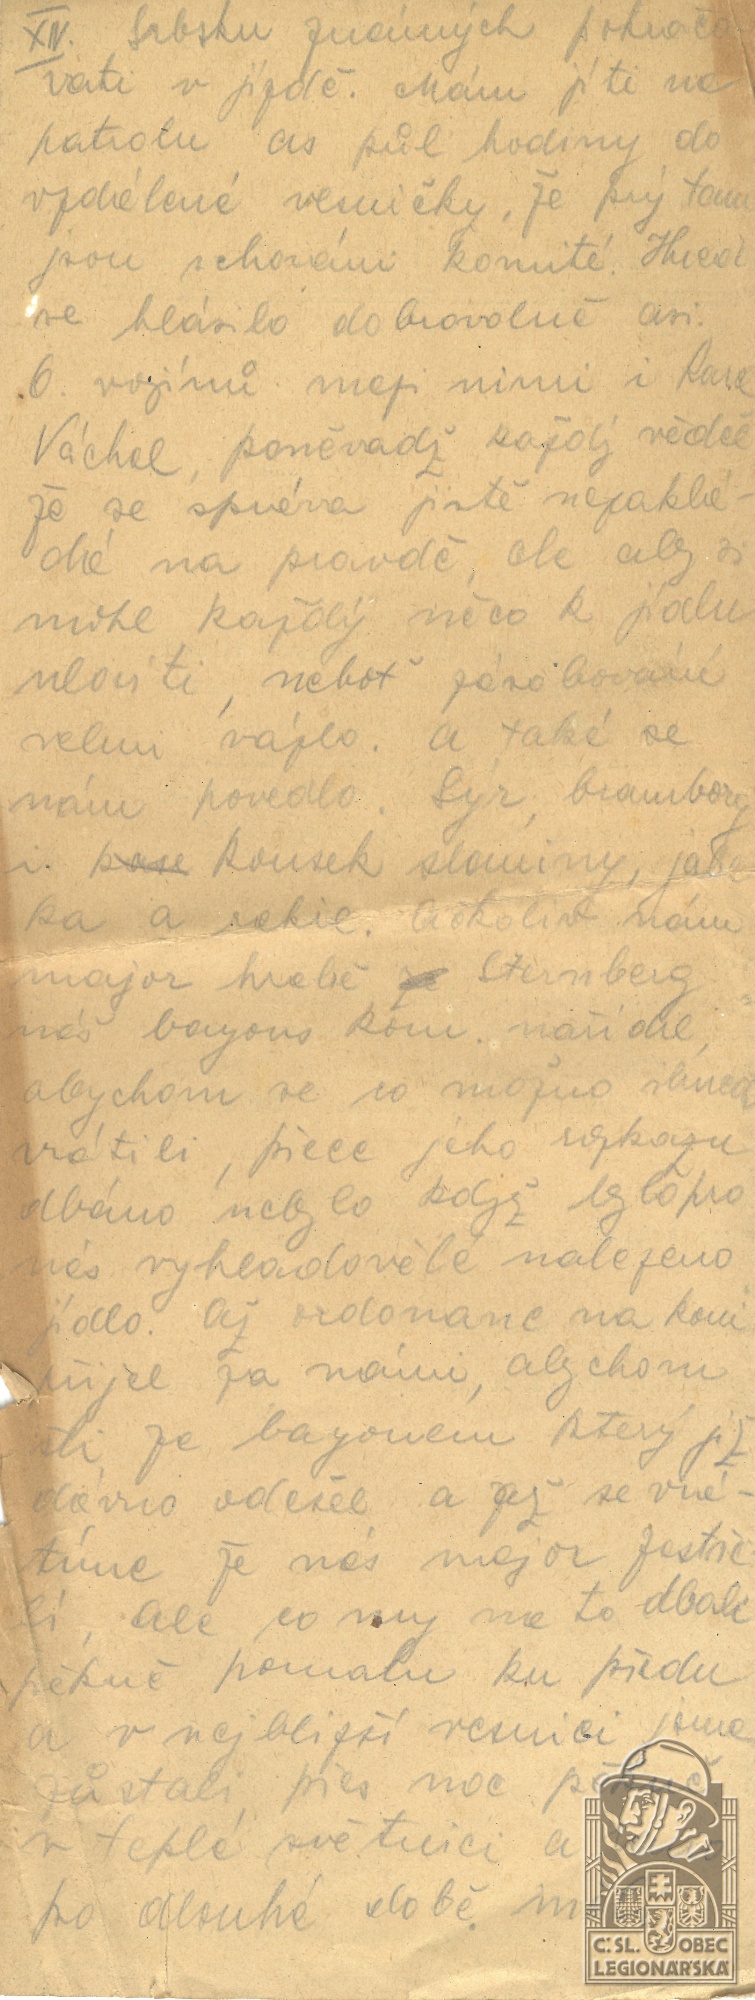 XIV. Srbsku známých pokračo
vati v jízdě. Mám jíti na
patrolu as půl hodiny do
vzdálené vesničky, že prý tam
jsou schováni komité. Hned
se hlásilo dobrovolně asi.
6. vojínů mezi nimi i Karel
Váchal, poněvadž každý věděl
že se správa jistě nezaklá-
dá na pravdě, ale aby si
mohl každý něco k jídlu
uloviti, neboť zásobování
velmi vázlo. A také se
nám povedlo. Sýr, brambory
i. kousek slaniny, jabl
ka a rakie. Ačkoliv nám
major hrabě Sternberg
náš bayons kom. nařídil,
abychom se co možno ihned
vrátili, přece jeho rozkazu
dbáno nebylo když bylo pro
nás vyhladovělé nalezeno
jídlo. Až ordonanc na koni
přijel za námi, abychom
šli za bayonem který již
dávno odešel a že se vrá-
tíme že nás major zastře
lí, ale co my na to dbali
pěkně pomalu ku předu
a v nejbližší vesnici jsme
zůstali přes noc pěkně
v teplé světnici a
po dlouhé době.
Č:SL. OBEC
LEGIONÁŘSKÁ